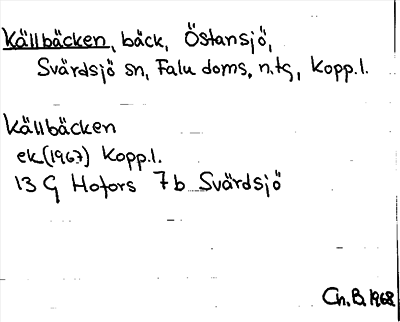 Källbäcken, bäck, Östansjö,
Svärdsjö sn, Falu doms. n. tg, Kopp.l.
Källbäcken
ek(1967) Kopp.l.
13 G Hofors 7b Svärdsjö
Ch.B.1968